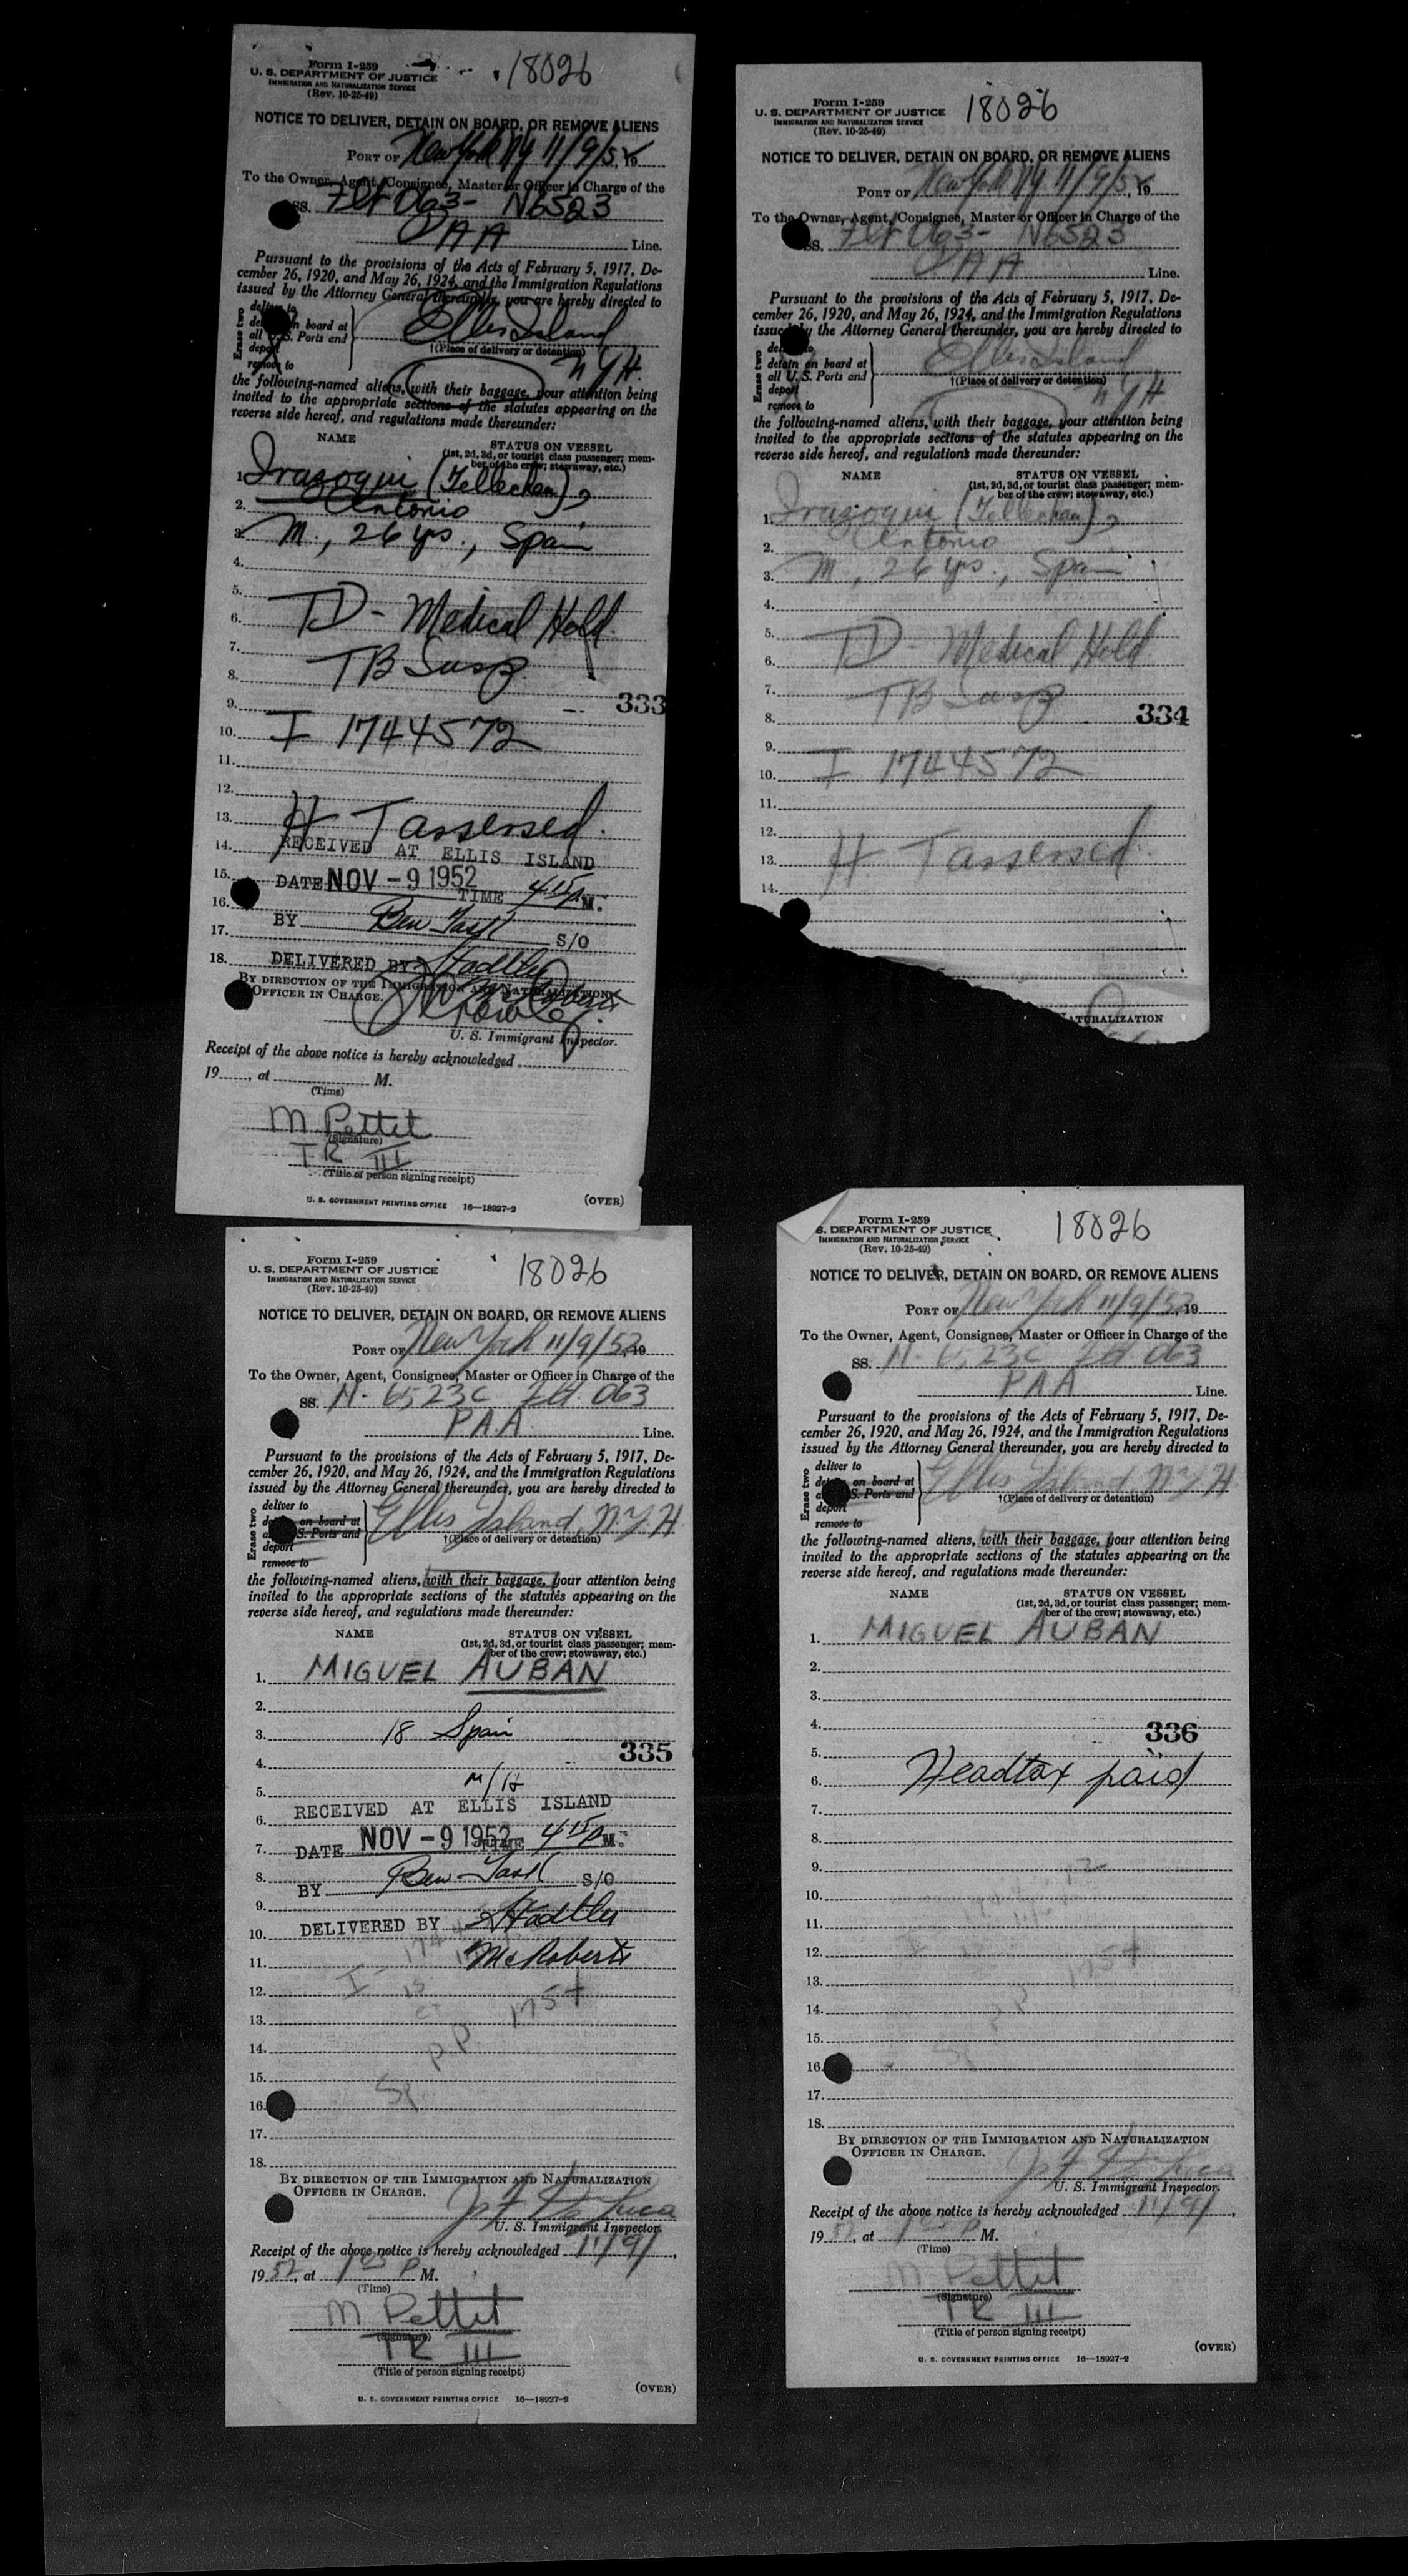 Form I-259
U. S. DEPARTMENT OF JUSTICE
IMMIGRATION AND NATURALIZATION SERVICE
(Rev. 10-25-49)
18026
NOTICE TO DELIVER, DETAIN ON BOARD, OR REMOVE ALIENS
PORT OF New York NY 11/9/52, 19
To the Owner, Agent, Consignee, Master or Officer in Charge of the
SS. Flt 063- N6523
PAA Line.
Pursuant to the provisions of the Acts of February 5, 1917, De-
cember 26, 1920, and May 26, 1924, and the Immigration Regulations
issued by the Attorney General thereunder, you are hereby directed to
Erase two
deliver to
detain on board at
all U.S. Ports and
deport
remove to
Ellis Island
†(Place of delivery or detention)
NYH.
the following-named aliens, with their baggage, your attention being
invited to the appropriate sections of the statutes appearing on the
reverse side hereof, and regulations made thereunder:
NAME STATUS ON VESSEL
(1st, 2d, 3d, or tourist class passenger; mem-
ber of the crew; stowaway, etc.)
1. Irazoqui (Tellechea),
2. Antonio
3. M., 26 yrs., Spain
4.
5.
6. TD - Medical Hold.
7.
8. TB Susp.
333
9.
10. I 1744572
11.
12.
13. H T assessed.
14. RECEIVED AT ELLIS ISLAND
15. DATE NOV - 9 1952 TIME 4 15 P M.
16.
17. BY Ben Task S/O
18. DELIVERED BY Stadtler
McRoberts
BY DIRECTION OF THE IMMIGRATION AND NATURALIZATION
OFFICER IN CHARGE.
U. S. Immigrant Inspector.
Receipt of the above notice is hereby acknowledged
19 , at M.
(Time)
M Pettit
(Signature)
TR III
(Title of person signing receipt)
U. S. GOVERNMENT PRINTING OFFICE 16—18927-2
(OVER)
Form I-259
U. S. DEPARTMENT OF JUSTICE
IMMIGRATION AND NATURALIZATION SERVICE
(Rev. 10-25-49)
18026
NOTICE TO DELIVER, DETAIN ON BOARD, OR REMOVE ALIENS
PORT OF New York NY 11/9/52, 19
To the Owner, Agent, Consignee, Master or Officer in Charge of the
SS. Flt 063- N6523
PAA Line.
Pursuant to the provisions of the Acts of February 5, 1917, De-
cember 26, 1920, and May 26, 1924, and the Immigration Regulations
issued by the Attorney General thereunder, you are hereby directed to
Erase two
deliver to
detain on board at
all U.S. Ports and
deport
remove to
Ellis Island
†(Place of delivery or detention)
NYH
the following-named aliens, with their baggage, your attention being
invited to the appropriate sections of the statutes appearing on the
reverse side hereof, and regulations made thereunder:
NAME STATUS ON VESSEL
(1st, 2d, 3d, or tourist class passenger; mem-
ber of the crew; stowaway, etc.)
1. Irazoqui (Tellechea),
2. Antonio
3. M., 26 yrs., Spain
4.
5.
6. TD - Medical Hold
7.
8. TB Susp
334
9.
10. I 1744572
11.
12.
13. H T assessed.
14.
NATURALIZATION
Form I-259
U. S. DEPARTMENT OF JUSTICE
IMMIGRATION AND NATURALIZATION SERVICE
(Rev. 10-25-49)
18026
NOTICE TO DELIVER, DETAIN ON BOARD, OR REMOVE ALIENS
PORT OF New York 11/9/52, 19
To the Owner, Agent, Consignee, Master or Officer in Charge of the
SS. N-6523C Flt. 063
P.A.A. Line.
Pursuant to the provisions of the Acts of February 5, 1917, De-
cember 26, 1920, and May 26, 1924, and the Immigration Regulations
issued by the Attorney General thereunder, you are hereby directed to
Erase two
deliver to
detain on board at
all U.S. Ports and
deport
remove to
Ellis Island, N.Y.H.
†(Place of delivery or detention)
the following-named aliens, with their baggage, your attention being
invited to the appropriate sections of the statutes appearing on the
reverse side hereof, and regulations made thereunder:
NAME STATUS ON VESSEL
(1st, 2d, 3d, or tourist class passenger; mem-
ber of the crew; stowaway, etc.)
1. MIGUEL AUBAN
2.
3. 18 Spain
335
4.
5. M/H
6. RECEIVED AT ELLIS ISLAND
7. DATE NOV - 9 1952 TIME 4 15 P M.
8. BY Ben Task S/O
9.
10. DELIVERED BY Stadtler
11. McRoberts
12. I
13.
14. PP 1754
15.
16.
17.
18.
BY DIRECTION OF THE IMMIGRATION AND NATURALIZATION
OFFICER IN CHARGE.
U. S. Immigrant Inspector.
Receipt of the above notice is hereby acknowledged 11/9/,
1952, at P M.
(Time)
M Pettit
(Signature)
TR III
(Title of person signing receipt)
(OVER)
U. S. GOVERNMENT PRINTING OFFICE 16—18927-2
Form I-259
S. DEPARTMENT OF JUSTICE
IMMIGRATION AND NATURALIZATION SERVICE
(Rev. 10-25-49)
18026
NOTICE TO DELIVER, DETAIN ON BOARD, OR REMOVE ALIENS
PORT OF New York 11/9/52, 19
To the Owner, Agent, Consignee, Master or Officer in Charge of the
SS. N-6523C Flt 063
PAA Line.
Pursuant to the provisions of the Acts of February 5, 1917, De-
cember 26, 1920, and May 26, 1924, and the Immigration Regulations
issued by the Attorney General thereunder, you are hereby directed to
Erase two
deliver to
detain on board at
all U.S. Ports and
deport
remove to
Ellis Island, N.Y.H.
†(Place of delivery or detention)
the following-named aliens, with their baggage, your attention being
invited to the appropriate sections of the statutes appearing on the
reverse side hereof, and regulations made thereunder:
NAME STATUS ON VESSEL
(1st, 2d, 3d, or tourist class passenger; mem-
ber of the crew; stowaway, etc.)
1. MIGUEL AUBAN
2.
3.
4.
336
5.
6. Headtax paid
7.
8.
9.
10.
11.
12.
13. 1754
14.
15.
16.
17.
18.
BY DIRECTION OF THE IMMIGRATION AND NATURALIZATION
OFFICER IN CHARGE.
U. S. Immigrant Inspector.
Receipt of the above notice is hereby acknowledged 11/9/,
1952, at P M.
(Time)
M Pettit
(Signature)
TR III
(Title of person signing receipt)
(OVER)
U. S. GOVERNMENT PRINTING OFFICE 16—18927-2